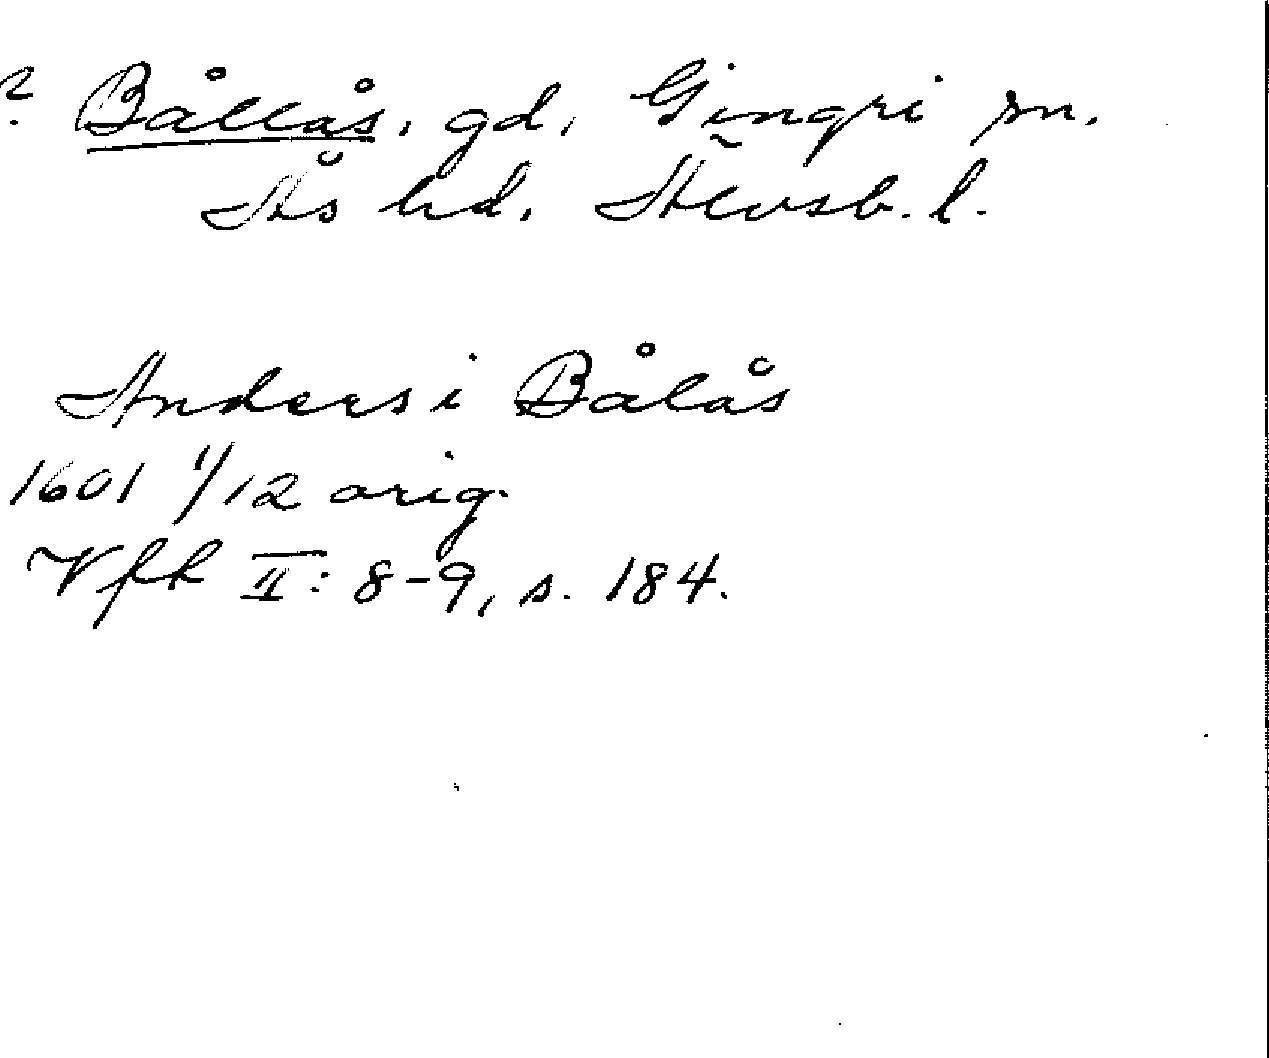 ? Bållås, gd, Gingri sn.
Ås hd. Älvsb. l.
Anders i Bålås
1601 1/12 orig.
Vfrk II: 8-9, s. 184.